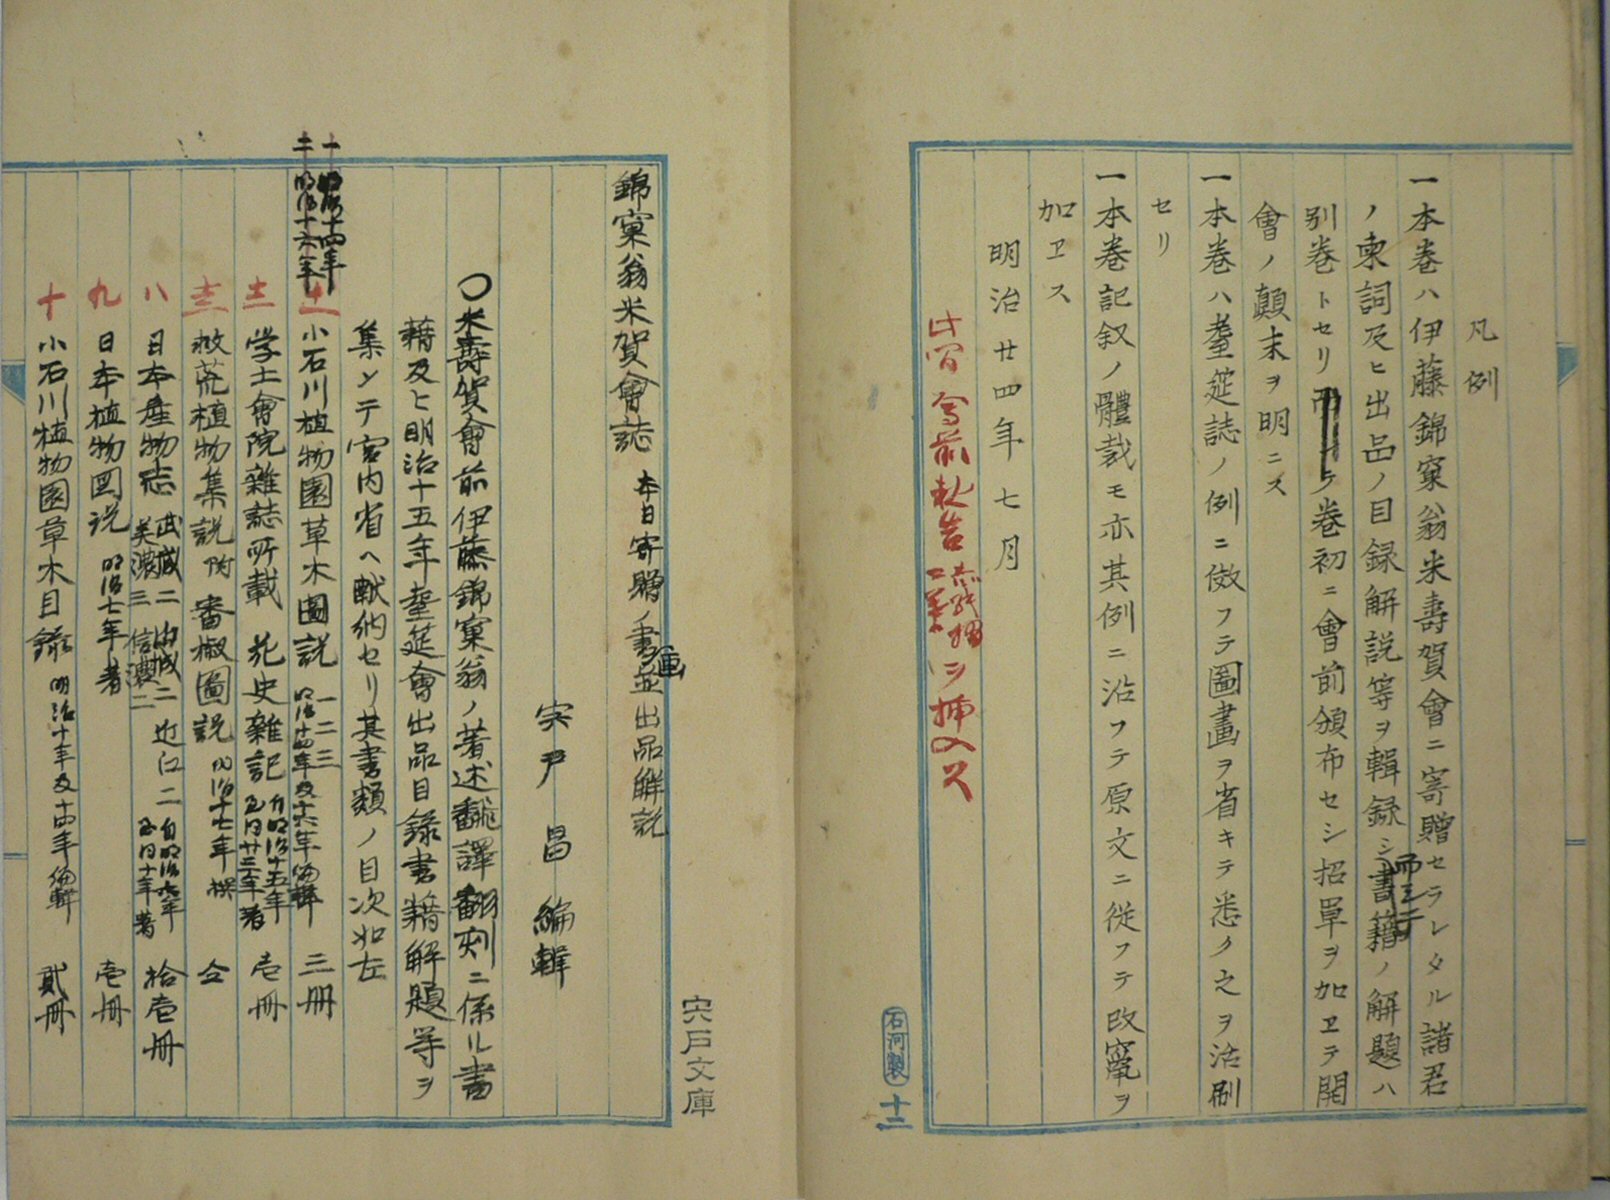 凡例
一本巻ハ伊藤錦窠翁米壽賀會ニ寄贈セラレタル諸君
ノ柬詞及ヒ出品ノ目録解説等ヲ輯録シ書籍ノ解題ハ
別巻トセリ 巻初ニ會前頒布セシ招単ヲ加ヱテ開
會ノ顛末ヲ明ニス
一本巻ハ耋莚誌ノ例ニ倣フテ圖畫ヲ省キテ悉ク之ヲ活刷
セリ
一本巻記叙ノ體裁モ亦其例ニ沿フテ原文ニ従フテ改竄ヲ
加ヱス
明治廿四年七月
ヲ挿入ス
石河製
十二
宍戸文庫
錦窠翁米賀會誌 本日寄贈ノ書画並出品解説
宍戸昌編輯
〇米壽賀會前伊藤錦窠翁ノ著述翻譯翻刻ニ係ル書
籍及ヒ明治十五年耋莚會出品目録書籍解題等ヲ
集メテ宮内省ヘ献納セリ其書類ノ目次如左
一 明治十四年
二 明治十六年
小石川植物園草木圖説 一二三 明治十四年及十六年編輯 三冊
学士會院雑誌所載 花史雑記 自明治十五年至同廿三年著 壱冊
救荒植物集説附番椒圖説 明治十七年撰 仝
八 日本産物志 武蔵二 山城二 近江二 美濃三 信濃二 自明治六年至同十年著 拾壱冊
九 日本植物図説 明治七年著 壱冊
十 小石川植物園草木目録 明治十年及十四年編輯 貳冊